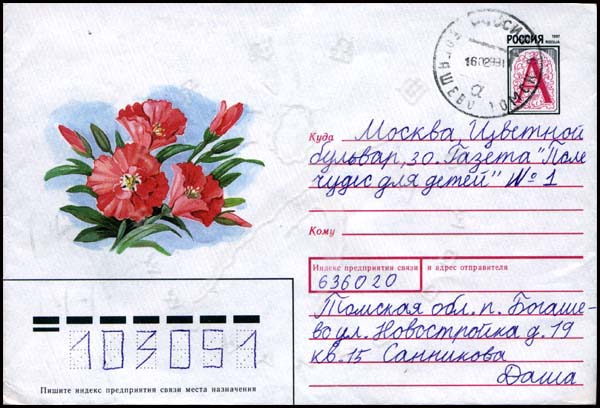 РОССИЯ
А
Куда Москва, Цветной
бульвар, 30. Газета "Поле
чудес для детей" № 1
Кому
Индекс предприятия связи и адрес отправителя
636020
Томская обл. п. Богаше-
во ул. Новостройка д. 19
кв. 15 Санникова
Даша
103051
Пишите индекс предприятия связи места назначения